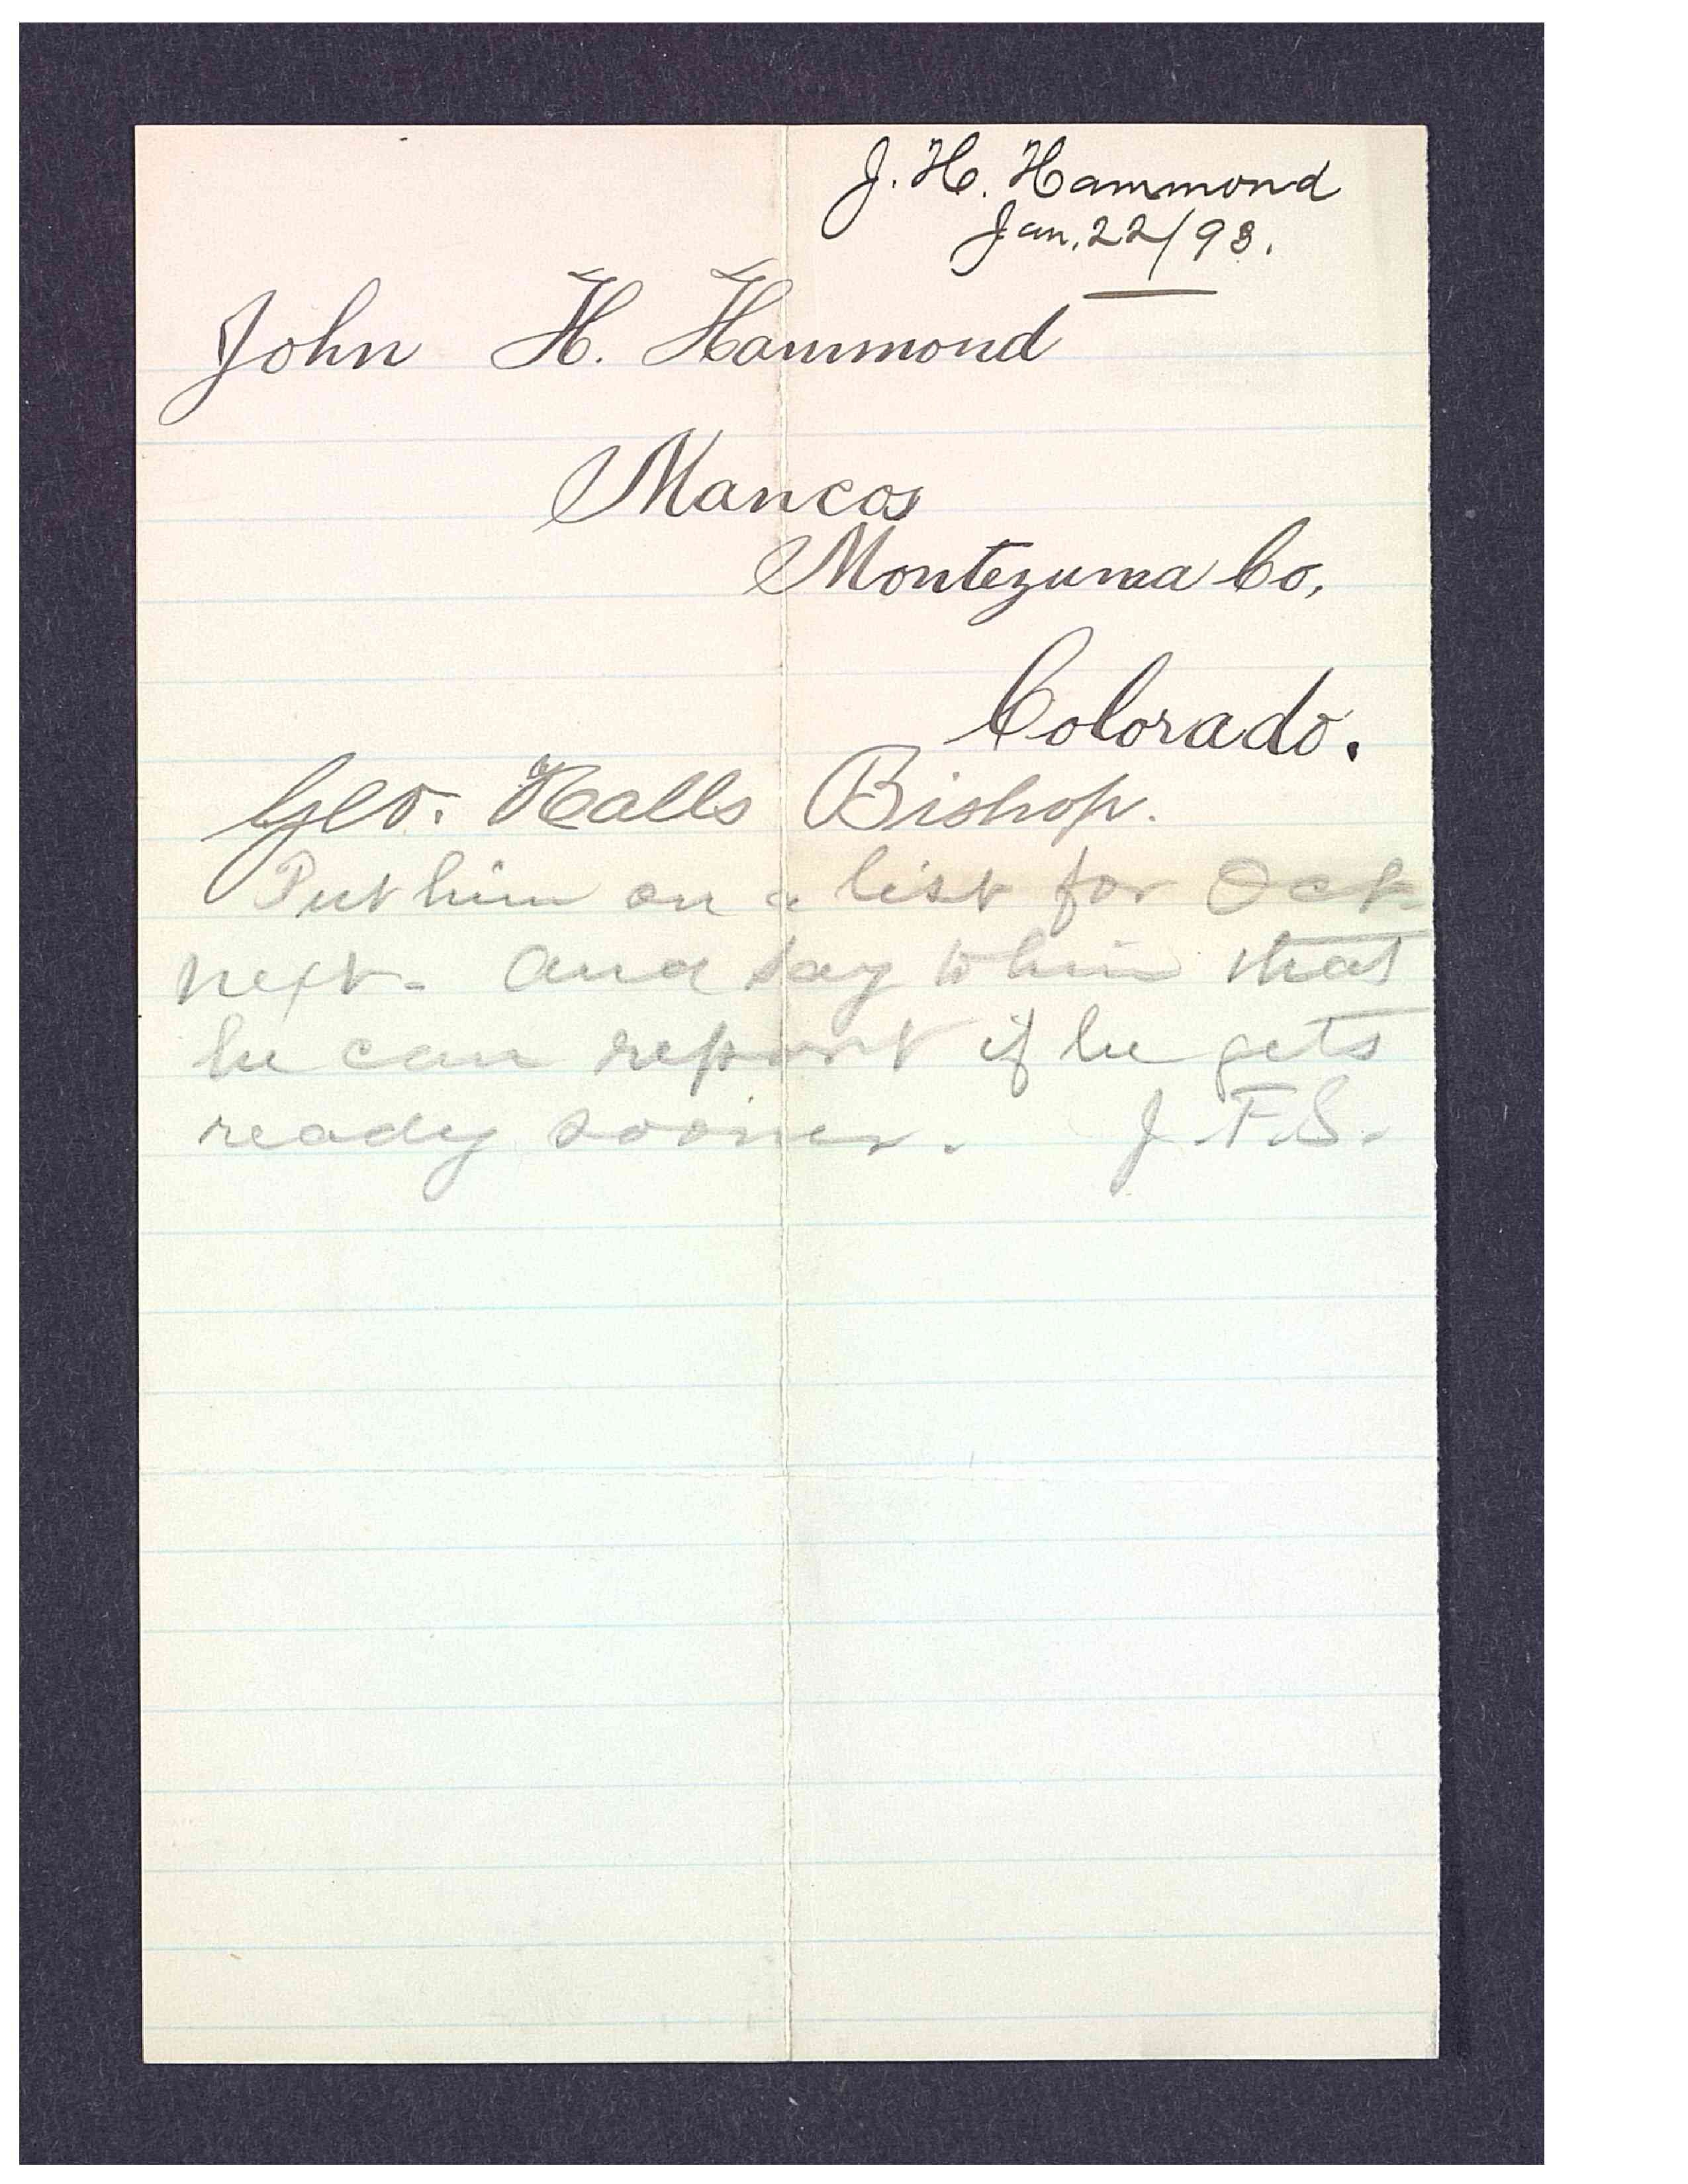 J. H. Hammond
Jan. 22/93.
John H. Hammond
Mancos
Montezuma Co,
Colorado.
Geo. Halls Bishop.
Put him on a list for Oct.
next. And say to him that
he can report if he gets
ready sooner. J. F. S.